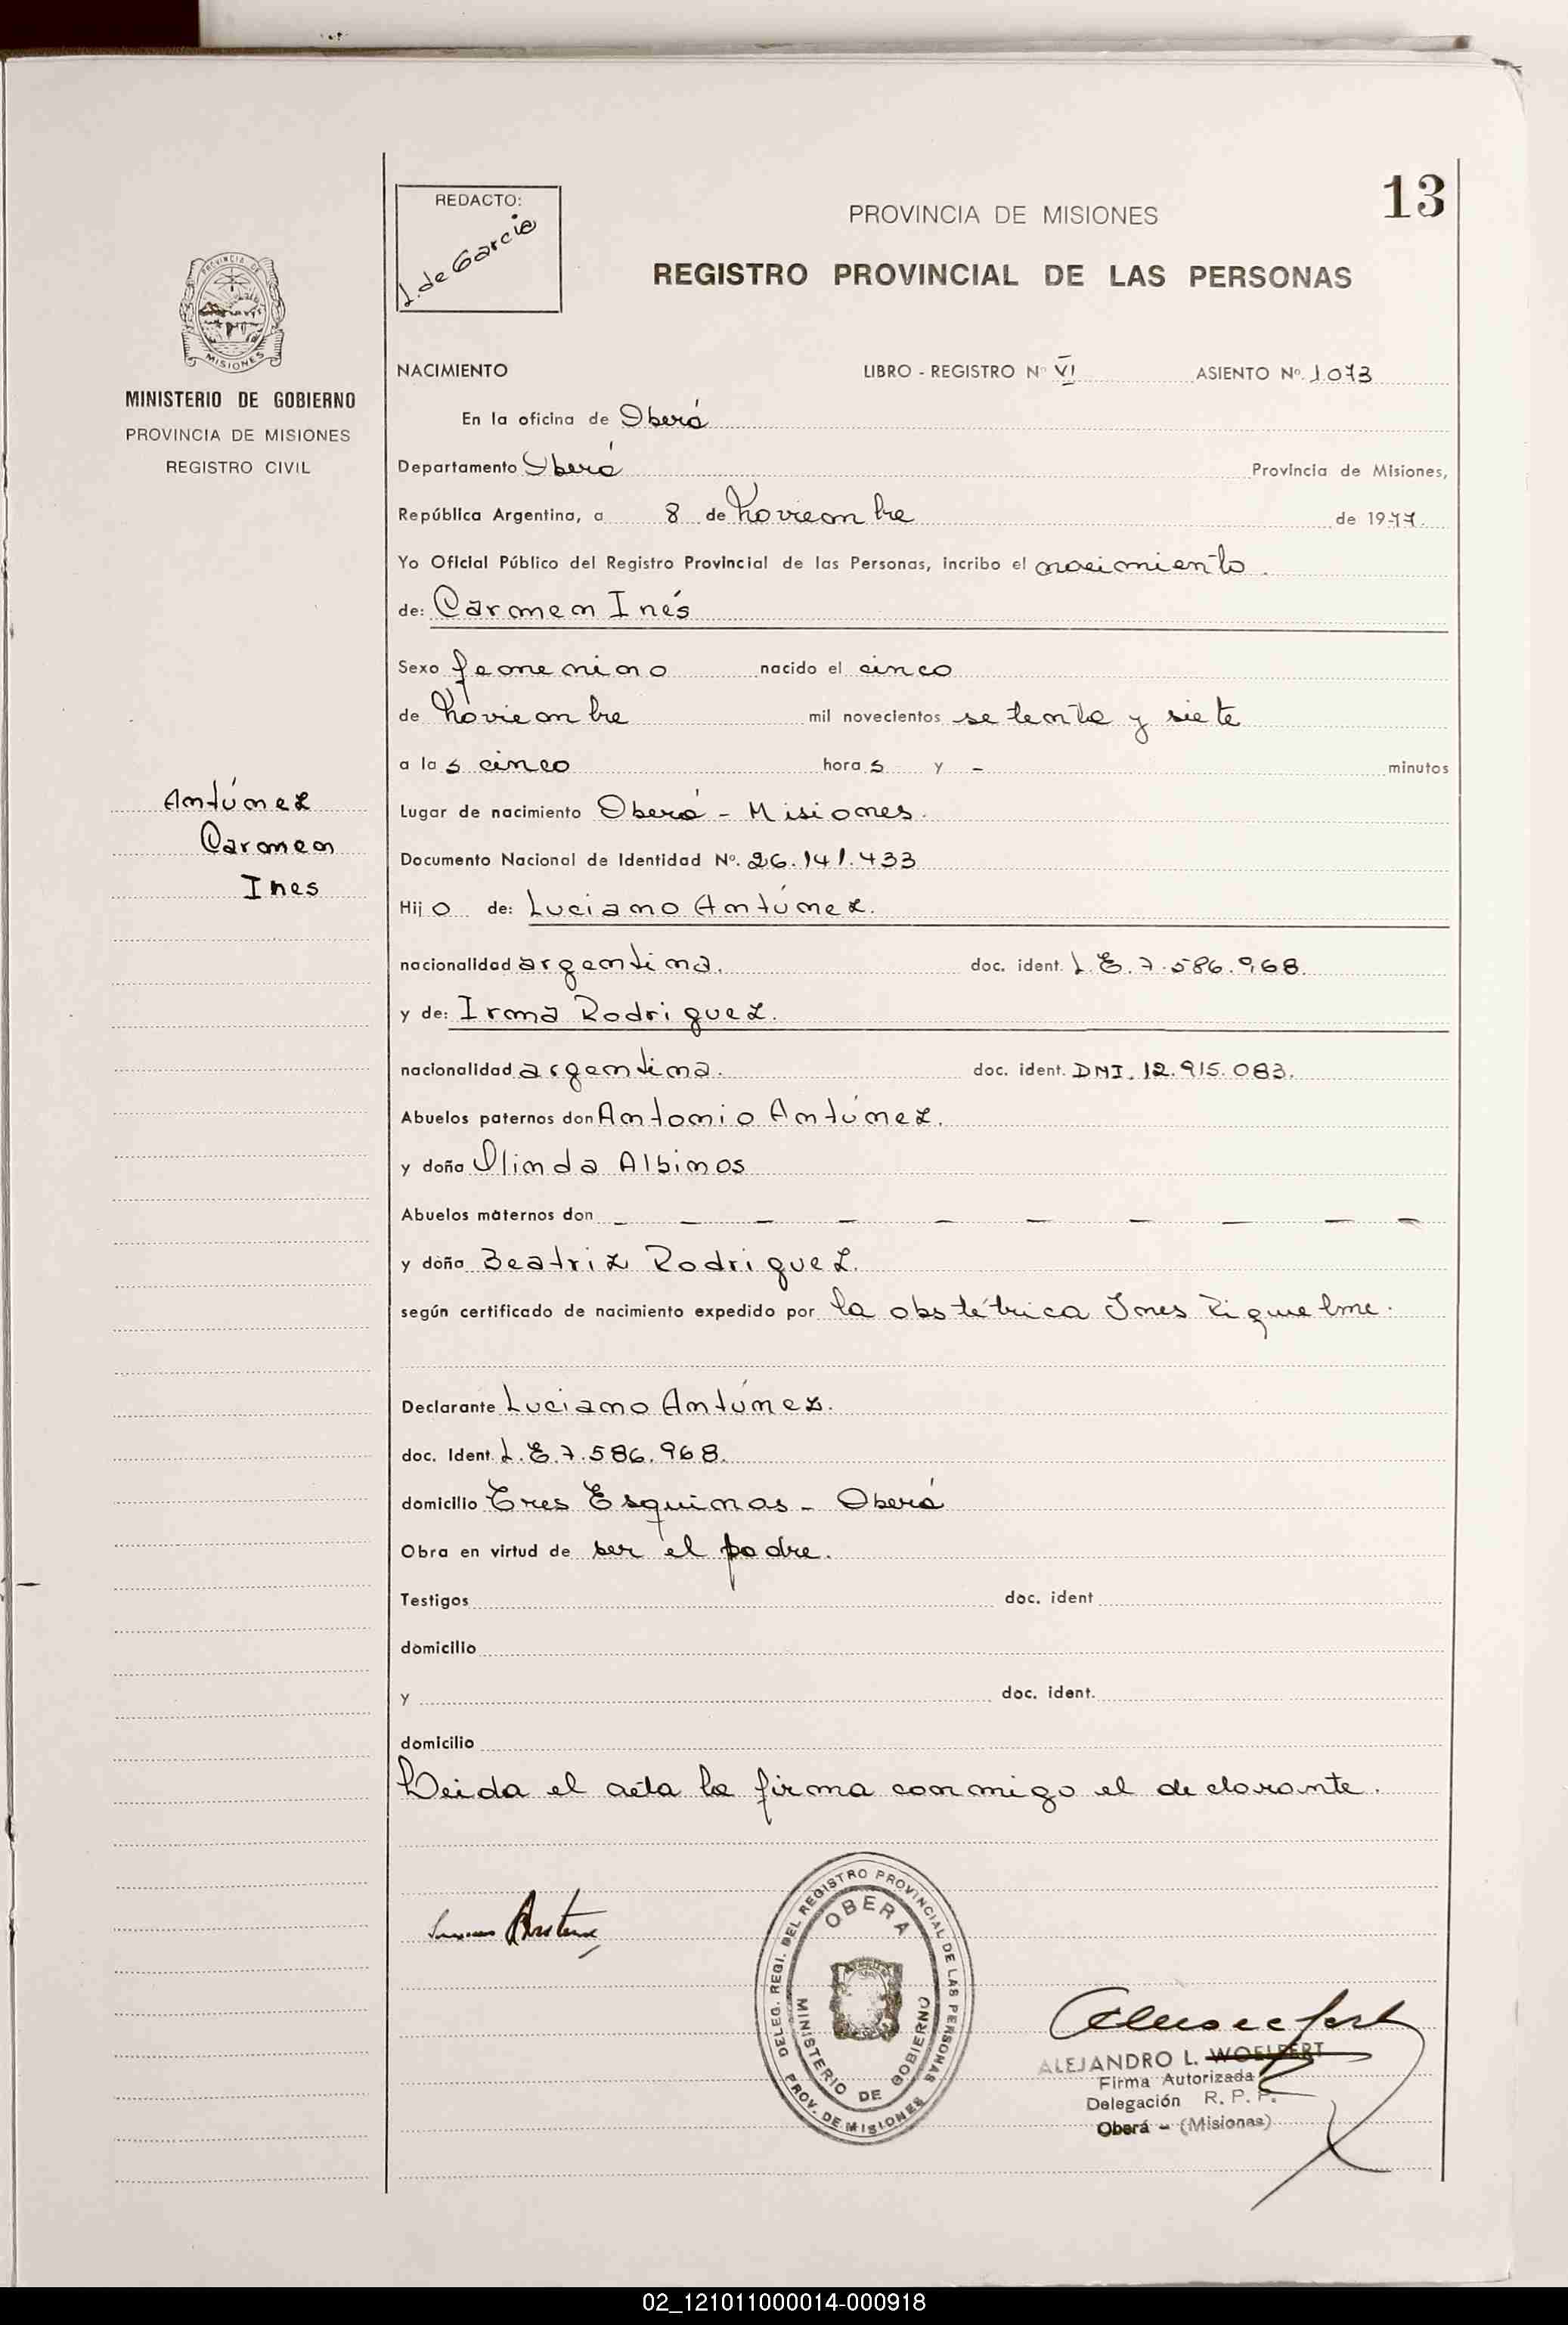 13
REDACTO:
L. de Garcia
PROVINCIA DE MISIONES
REGISTRO PROVINCIAL DE LAS PERSONAS
PROVINCIA DE
MISIONES
MINISTERIO DE GOBIERNO
PROVINCIA DE MISIONES
REGISTRO CIVIL
NACIMIENTO LIBRO - REGISTRO Nº VI ASIENTO Nº. 1073
En la oficina de Oberá
Departamento Oberá Provincia de Misiones,
República Argentina, a 8 de Noviembre de 1977.
Yo Oficial Público del Registro Provincial de las Personas, incribo el nacimiento.
de: Carmen Inés
Sexo femenino nacido el cinco
de Noviembre mil novecientos setenta y siete
a las cinco horas y - minutos
Antúnez
Carmen
Ines
Lugar de nacimiento Oberá - Misiones.
Documento Nacional de Identidad Nº. 26.141.433
Hijo de: Luciano Antúnez.
nacionalidad argentina. doc. ident. L.E.7.586.968.
y de: Irma Rodriguez.
nacionalidad argentina. doc. ident. DNI. 12.915.083.
Abuelos paternos don Antonio Antúnez.
y doña Olinda Albinos
Abuelos maternos don - - - - - - - - - -
y doña Beatriz Rodriguez.
según certificado de nacimiento expedido por la obstétrica Ines Riquelme.
Declarante Luciano Antúnez.
doc. Ident. L.E.7.586.968.
domicilio Tres Esquinas - Oberá
Obra en virtud de ser el padre.
Testigos doc. ident
domicilio
y doc. ident.
domicilio
Leida el acta la firma conmigo el declarante.
DELEG. REGI. DEL REGISTRO PROVINCIAL DE LAS PERSONAS
PROV. DE MISIONES
OBERA
MINISTERIO DE GOBIERNO
ALEJANDRO L. WOELFERT
Firma Autorizada
Delegación R. P. P.
Oberá - (Misiones)
02_121011000014-000918